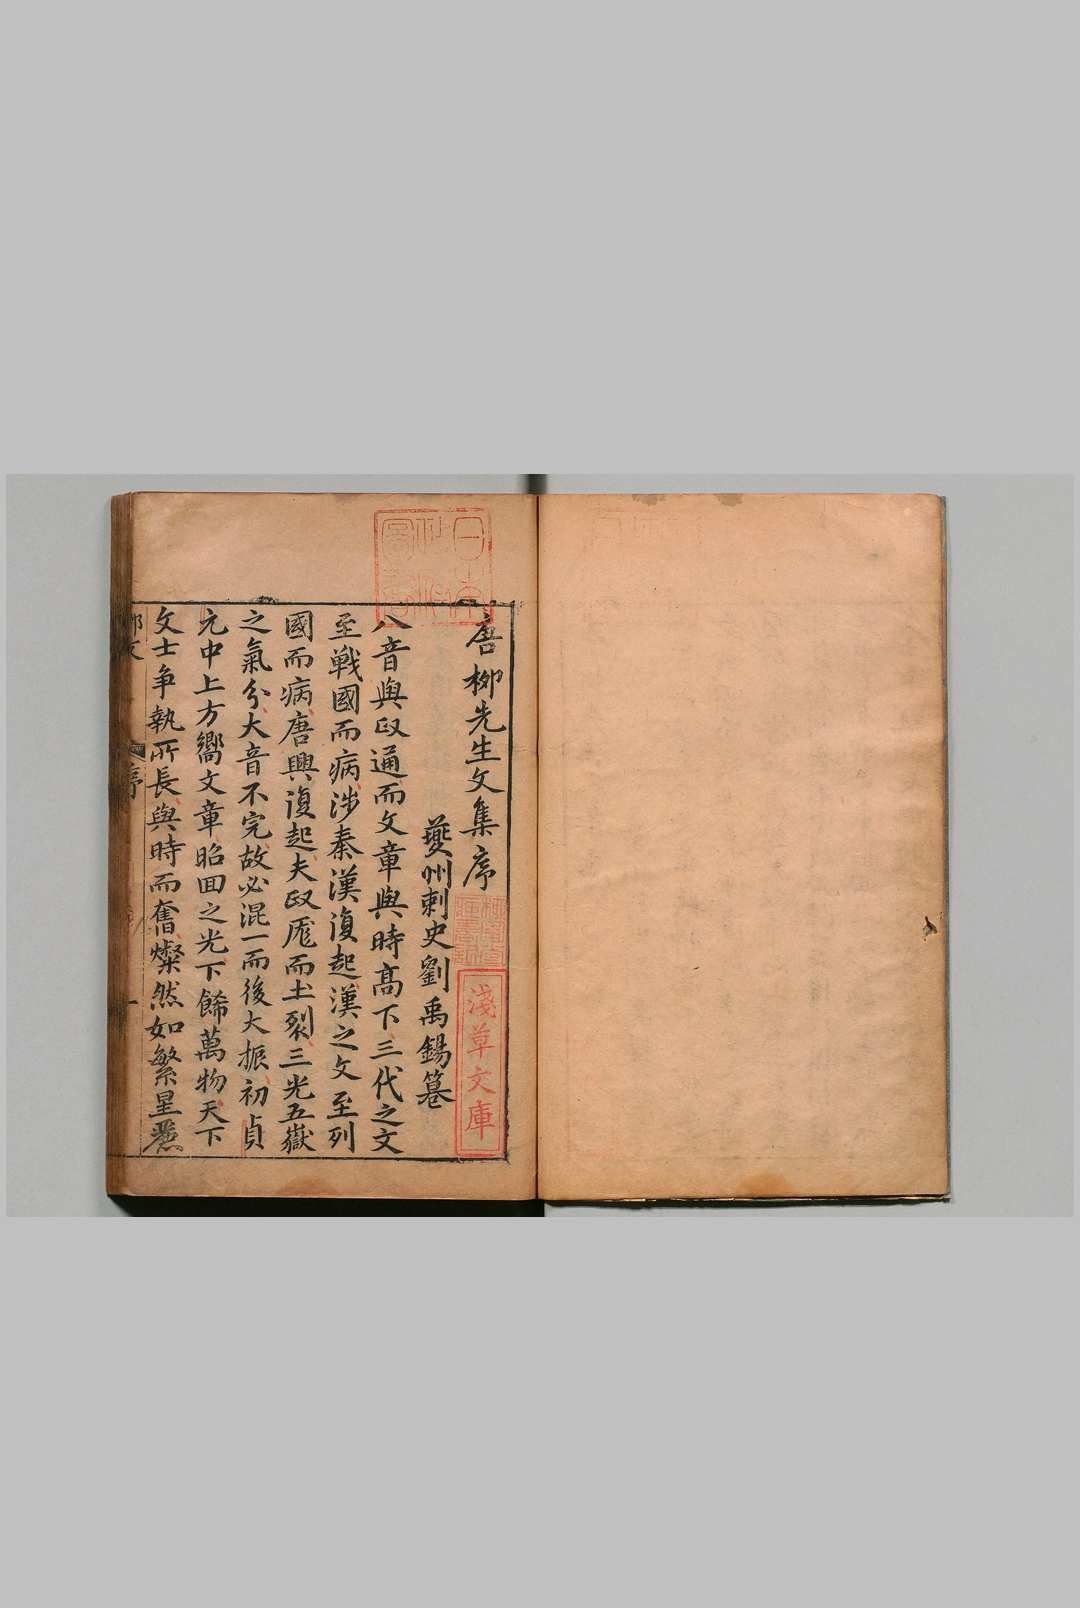 唐柳先生文集序
夔州刺史劉禹錫纂
八音與政通而文章與時髙下三代之文
至戰國而病涉秦漢復起漢之文至列
國而病唐興復起夫政厖而土裂三光五嶽
之氣分大音不完故必混一而後大振初貞
元中上方嚮文章昭回之光下餙萬物天下
文士争執所長與時而奮燦然如繁星麗
序
一
日本
圖書
淺草文庫